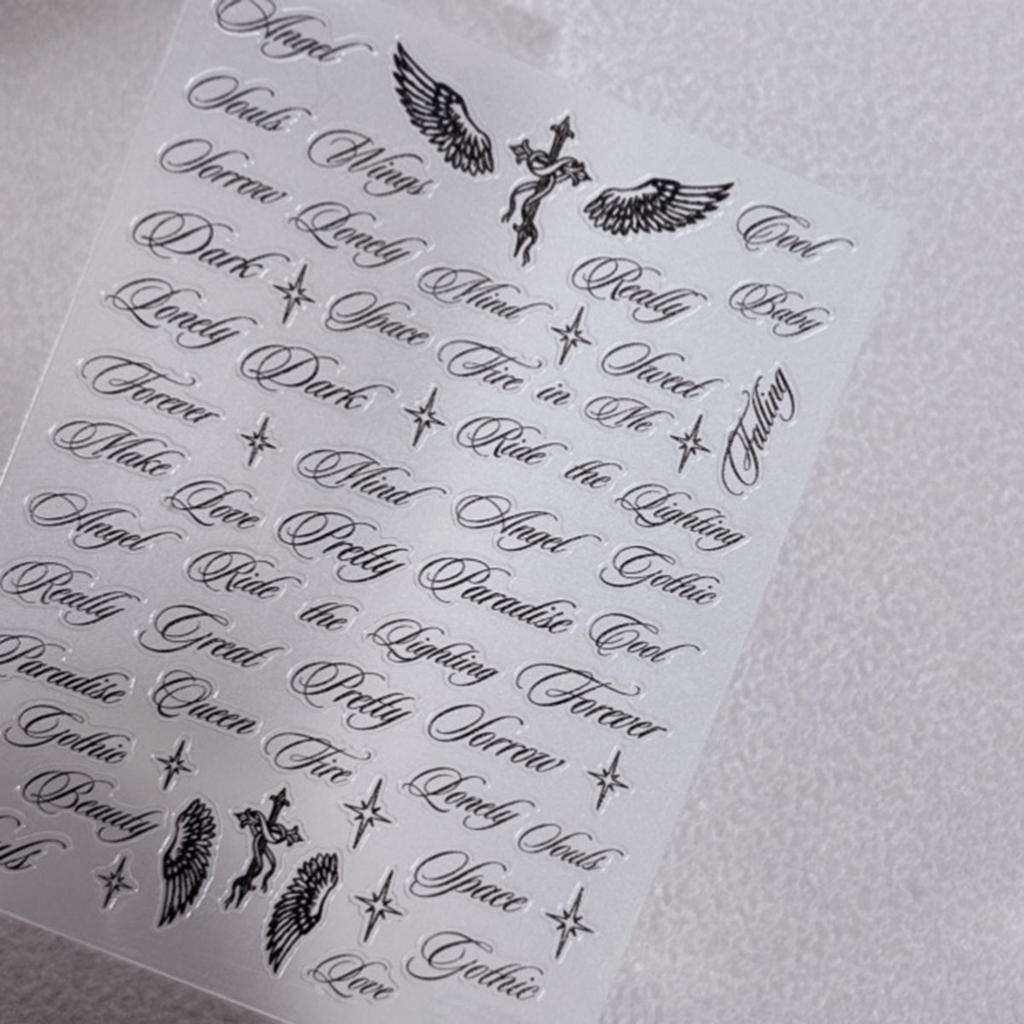 Angel
Souls Wings
Sorrow Lonely Cool
Dark Mind Really Baby
Lonely Space Fire in Me Sweet
Falling
Forever Dark Ride the Lighting
Make Love Mind Angel Gothic
Angel Pretty Paradise Cool
Really Ride the Lighting Forever
Paradise Great Pretty Sorrow
Gothic Queen Fire Lonely Souls
Beauty Space
Love Gothic